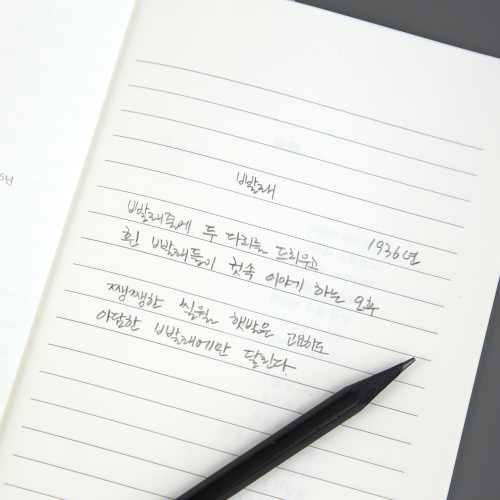 빨래
1936년
빨래줄에 두 다리를 드리우고
흰 빨래들이 귓속 이야기 하는 오후
쨍쨍한 칠월 햇발은 고요히도
아담한 빨래에만 달린다.